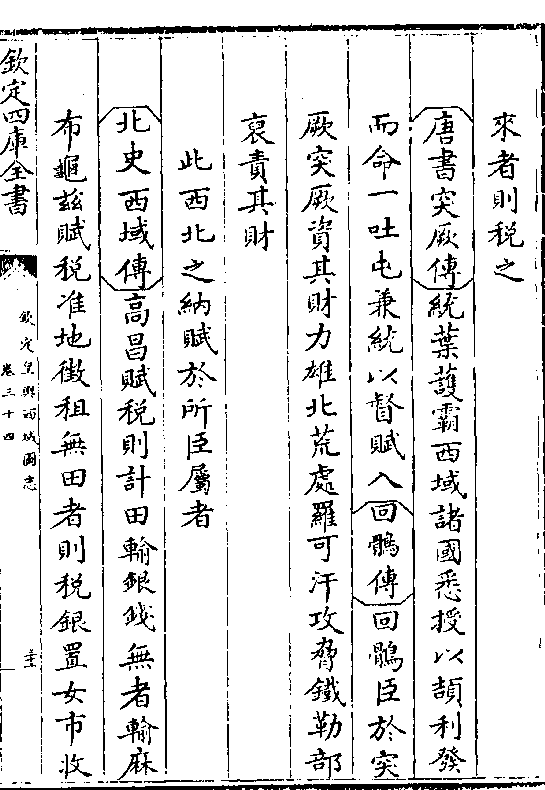 來者則税之
唐書突厥傳統葉護霸西域諸國悉授以頡利發
而命一吐屯兼統以督賦入回鶻傳回鶻臣於突
厥突厥資其財力雄北荒處羅可汗攻脅鐵勒部
裒責其財
此西北之納賦於所臣屬者
北史西域傳高昌賦税則計田輸銀錢無者輸麻
布龜兹賦税准地徵租無田者則税銀置女市收
欽定四庫全書
欽定皇輿西域圖志
卷三十四